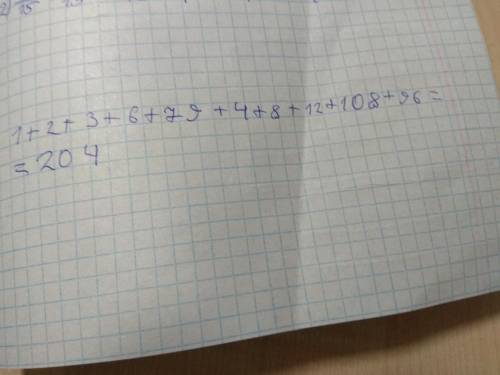 1+2+3+6+79+4+8+12+108+96=
=204